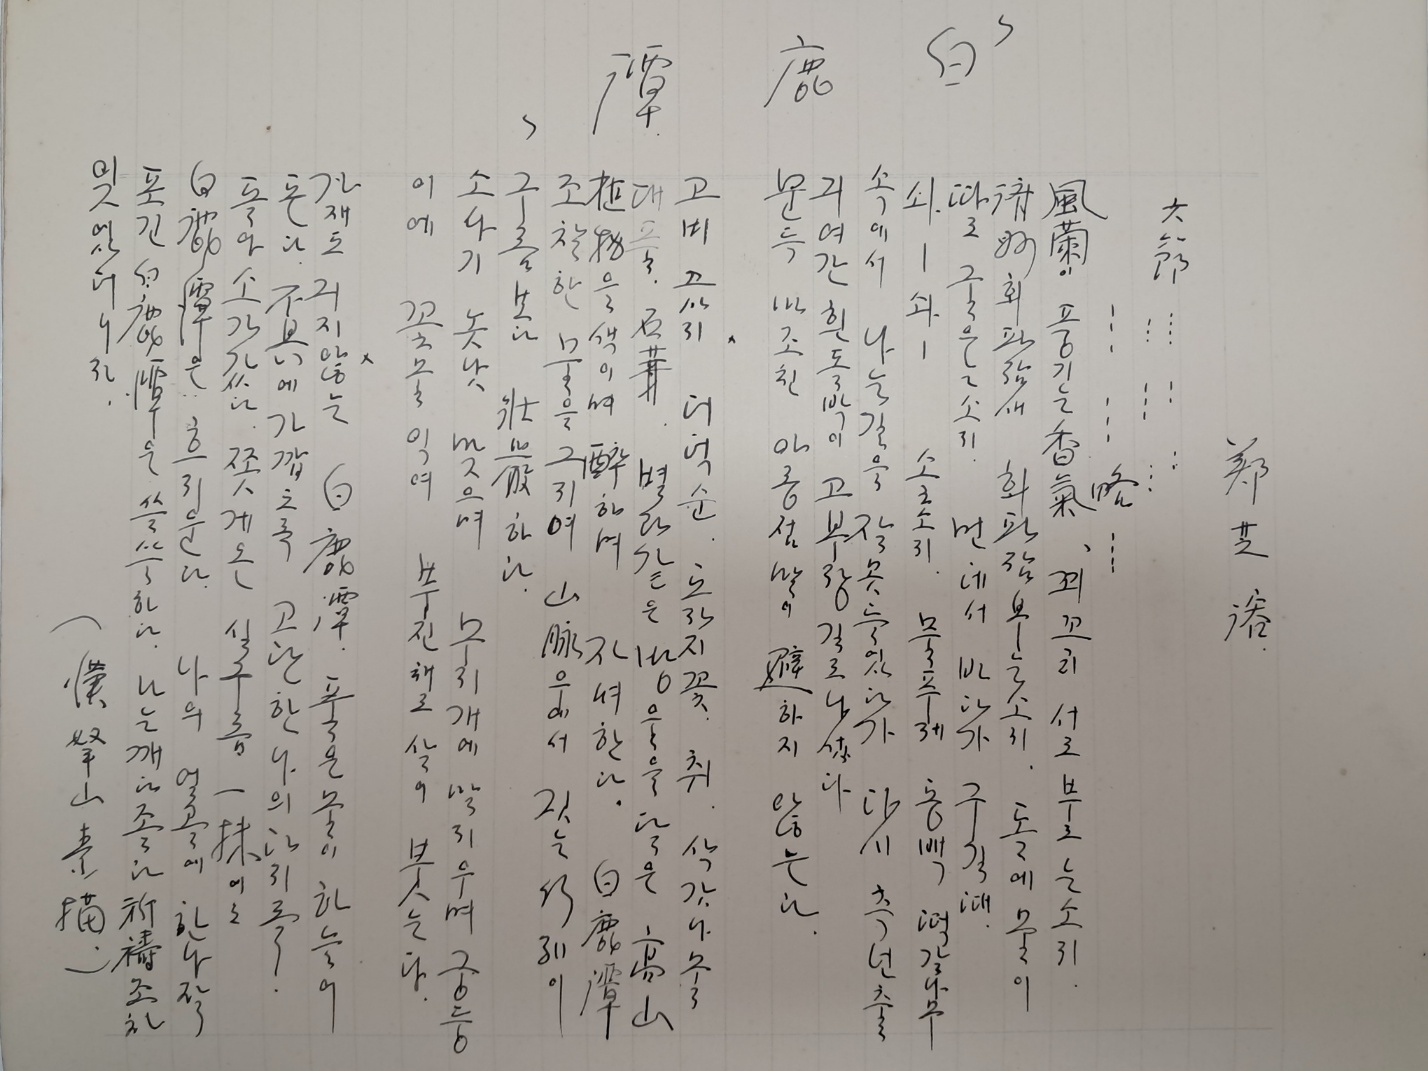 白鹿潭
鄭芝溶
六節
略
風蘭이 풍기는 香氣、꾀꼬리 서로 부르는소리.
濟州회파람새 회파람부는소리. 돌에 물이
따로 굴으는소리. 먼데서 바다가 구길때
쇠ㅡ쇠ㅡ 솔소리. 물푸레 동백 떡갈나무
속에서 나는길을 잘못들었다가 다시 측넌출
긔여간 흰돌박이 고부랑길로나섰다
문득 마조친 아롱점말이 避하지 않는다.
고비 고사리 더덕순. 도라지꽃. 취. 삭갓나물
대풀. 石茸. 별과같은 방울을 달은 高山
植物을색이며 醉하며 자며한다. 白鹿潭
조찰한 물을 그리여 山脈우에서 짓는 行列이
구름보다 壯嚴하다.
소나기 놋낫 맞으며 무지개에 말리우며 궁둥
이에 꽃물 익여 부친채로 살이 붓는다.
가재도 긔지않는 白鹿潭 푸른물이 하늘이
돈다. 不具에 가깝도록 고단한 나의 다리를
돌아 소가갔다. 쫒겨온 실구름 一抹에도
白鹿潭은 흐리운다. 나의 얼골에 한나잘
포긴 白鹿潭은 쓸쓸하다. 나는깨다졸다 祈禱조차
잊었더니라.
(漢拏山素描.)